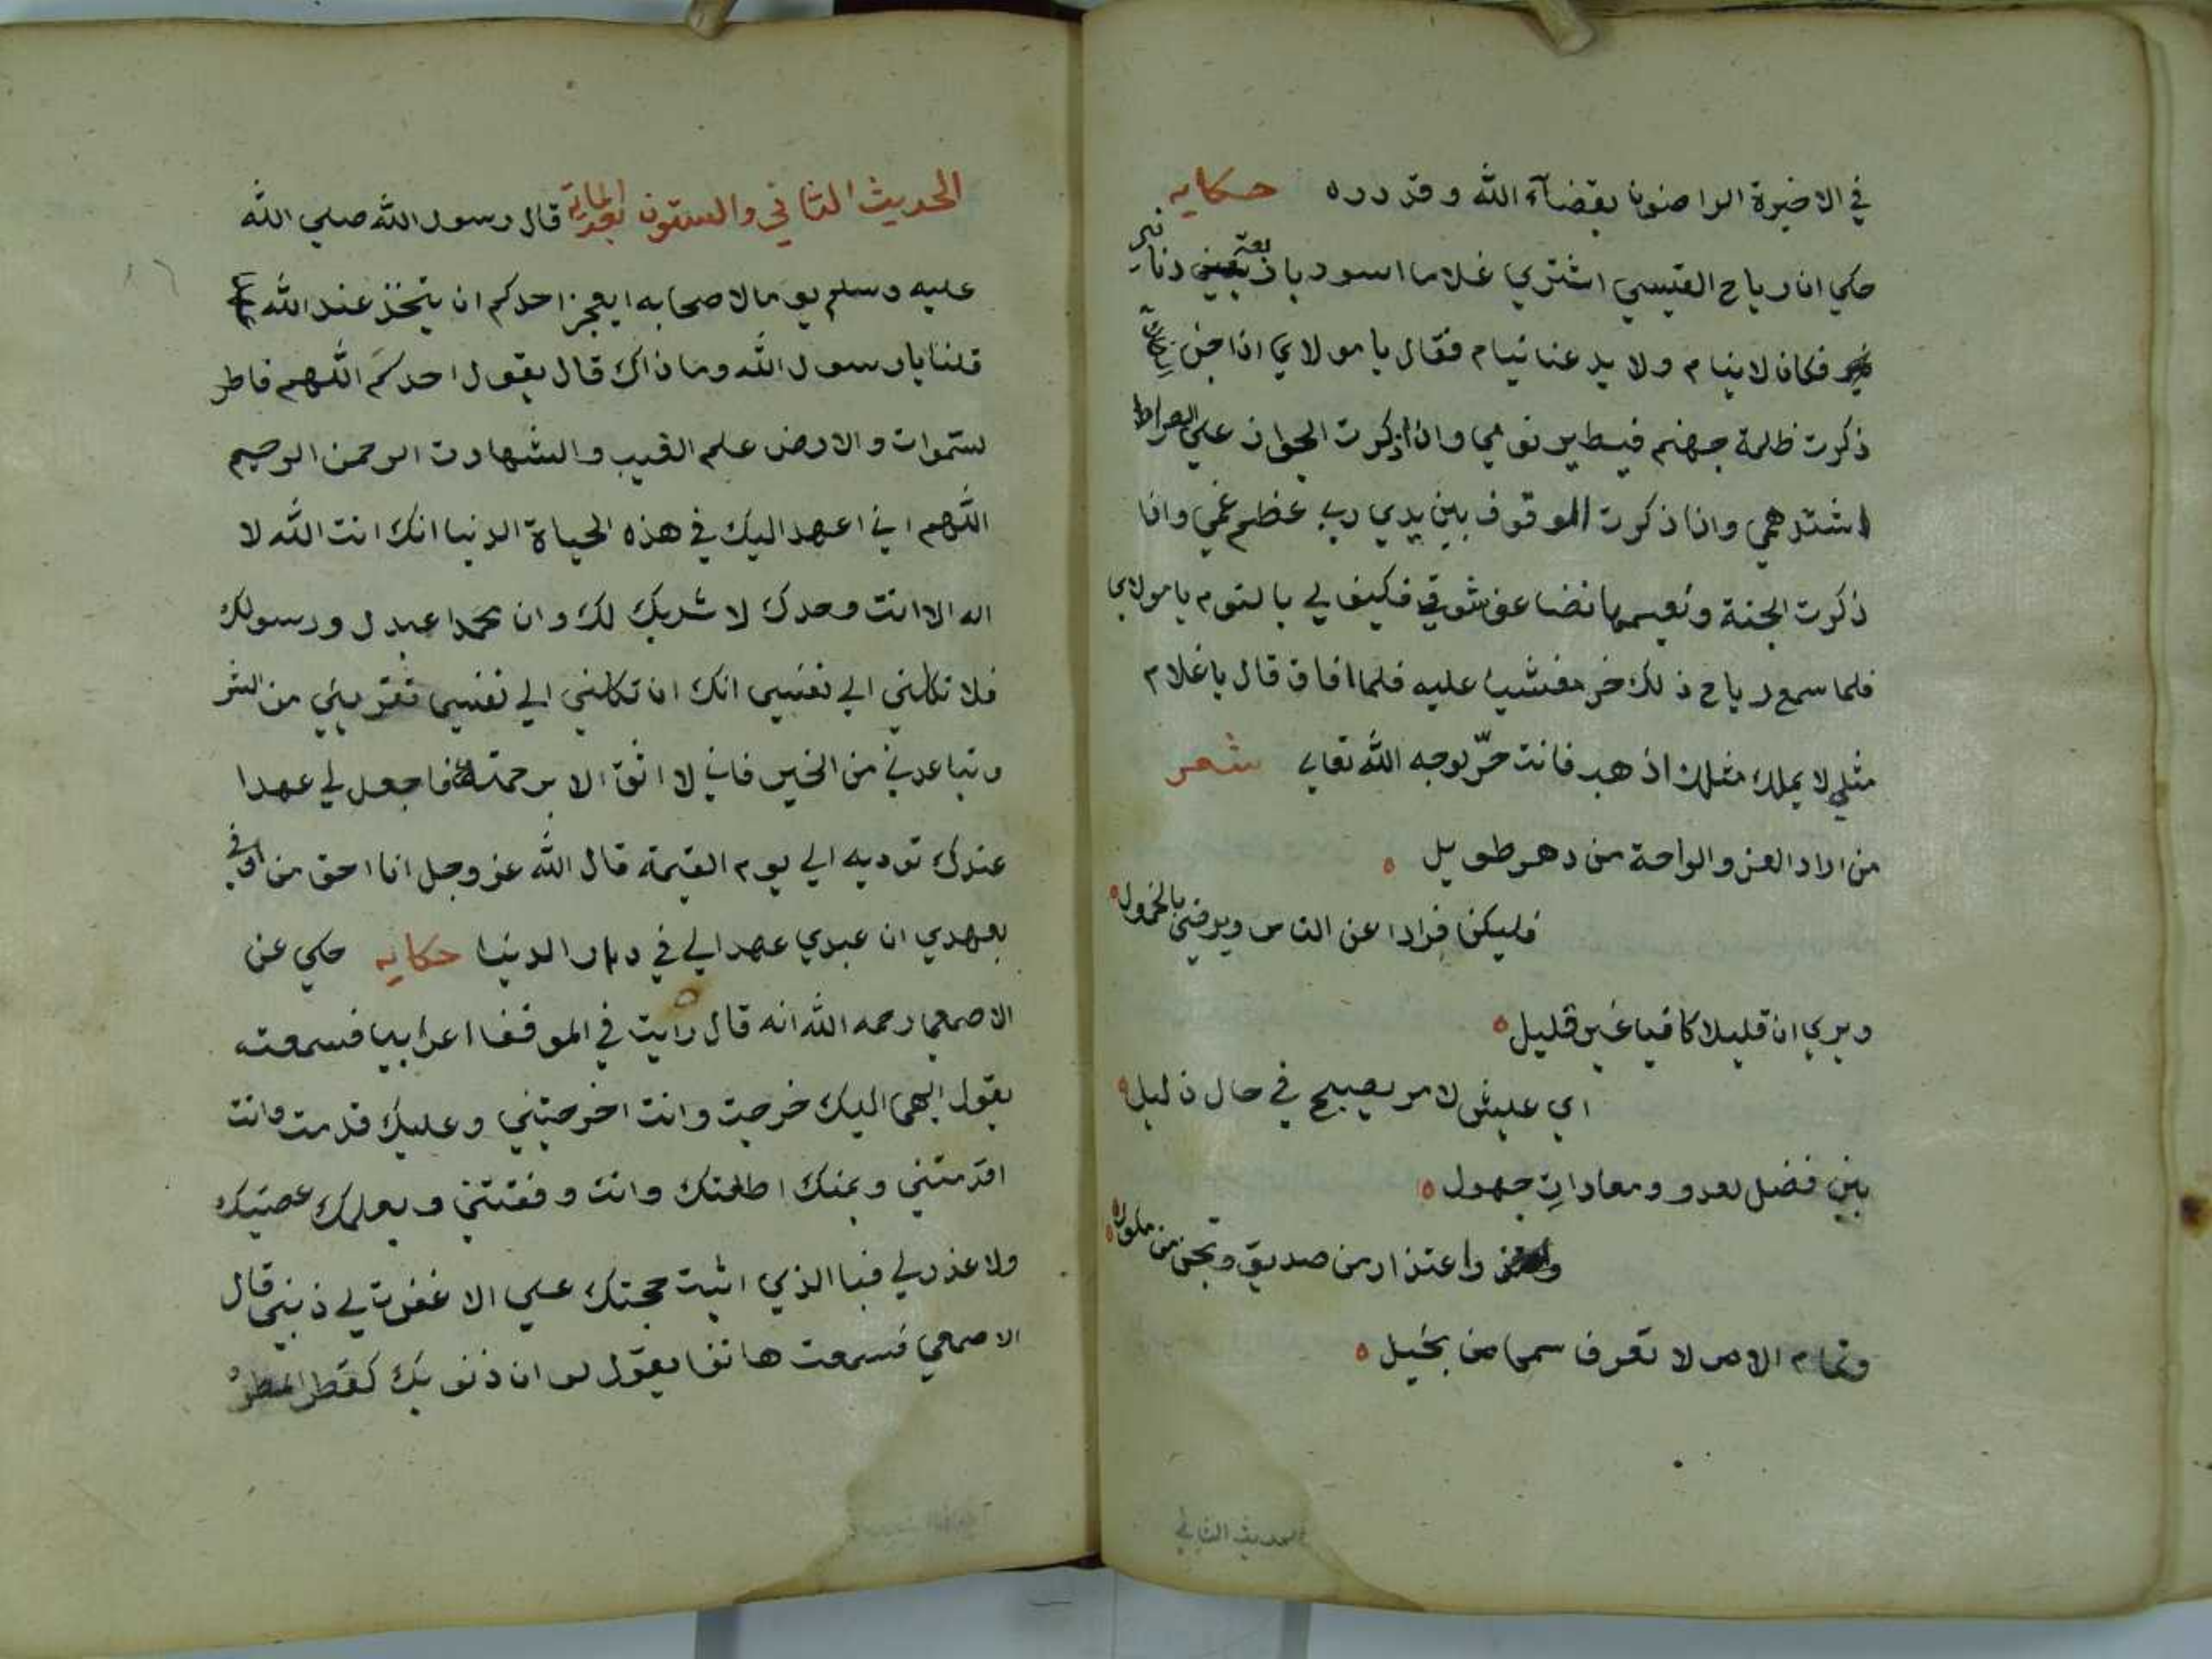 في الاخيرة الراضون بقضآء الله وقدره حكايه
حكي ان رياح القيسي اشتري غلاما اسود باربعة دنانير
فكان لا ينام ولا يدعنا ننام فقال يا مولاي اذا جن
ذكرت ظلمة جهنم فيطير نومي واذا ذكرت الجواز علي الصراط
اشتد همي واذا ذكرت الموقوف بين يدي ربي عظم غمي واذا
ذكرت الجنة ونعيمها تضاعف شوقي فكيف لي بالنوم يا مولاي
فلما سمع رياح ذلك خر مغشيا عليه فلما افاق قال يا غلام
مثلي لا يملك مثلك اذهب فانت حرّ لوجه الله تعالي شعر
من اراد العز والراحة من دهر طويل
فليكن فرادا عن الناس ويرضي بالخمول
ويري ان قليلا كافيا غير قليل
اي عليش لامر يصبح في حال ذليل
بين فضل بعدو ومعادات جهول
واعتذار من صديق وتجن من ملول
وتمام الامر لا تعرف سمحا من بخيل
الحديث الثاني
الحديث الثاني والستون بعد الماية قال رسول الله صلي الله
عليه وسلم يوما لاصحابه ايعجز احدكم ان يتخذ عند الله
قلنا يا رسول الله وما ذاك قال يقول احدكم اللهم فاطر
لستموات والارض علم الغيب والشهادت الرحمن الرحيم
اللهم اني اعهد اليك في هذه الحياة الدنيا انك انت الله لا
اله الا انت وحدك لا شريك لك وان محمدا عبدك ورسولك
فلا تكلني الي نفسي انك ان تكلني الي نفسي تقربني من الشر
وتباعدني من الخير فاني لا اثق الا برحمتك فاجعل لي عهدا
عندك توديه الي يوم القيمة قال الله عز وجل انا احق من اوفي
بعهدي ان عبدي عهد الي في دار الدنيا حكايه حكي عن
الاصمعي رحمه الله انه قال رايت في الموقف اعرابيا فسمعته
يقول الهي اليك خرجت وانت اخرجتني وعليك قدمت وانت
اقدمتني وبمنك اطعتك وانت وفقتني وبعلمك عصيتك
ولا عذر لي فبا الذي اثبت حجتك علي الا غفرت لي ذنبي قال
الاصمعي فسمعت هاتفا يقول لو ان ذنوبك كقطر المطر